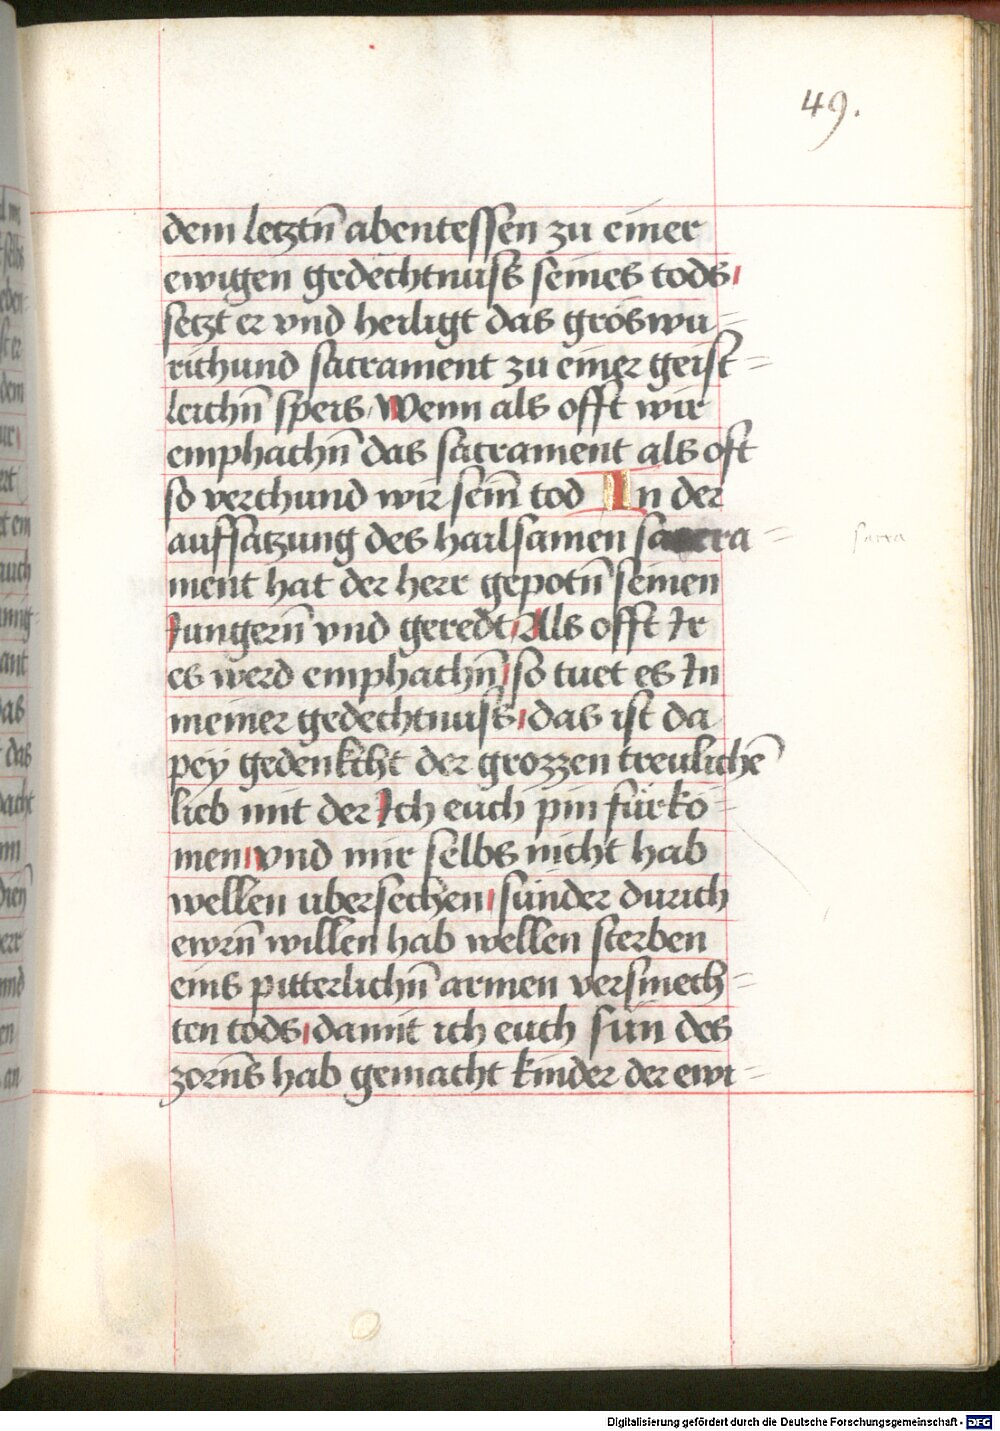 49.
dem letztn̄ abentessen zu einer
ewigen gedechtnuss seines tods
setzt er vnd heiligt das gröswu=
richund sacrament zu einer geist=
leichn̄ speis Wenn als offt wir
emphachn̄ das sacrament als oft
so verchund wir sein̄ tod In der
auffsatzung des hailsamen sacra=
ment hat der herr gepotn̄ seinen
Jungern̄ vnd geredt Als offt Ir
es werd emphachn̄ so tuet es In
meiner gedechtnuss das ist da
pey gedenkcht der grozzen treulichē
lieb mit der Ich euch pin fürko=
men vnd mir selbs nicht hab
wellen ubersechen sünder durich
ewrn̄ willen hab wellen sterben
eins pitterlichn̄ armen versmech=
ten tods damit ich euch sün des
zorn̄s hab gemacht kinder der ewi=